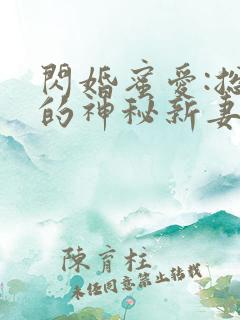 閃婚蜜愛:總
的神秘新妻
陳育柱
未经同意禁止转载